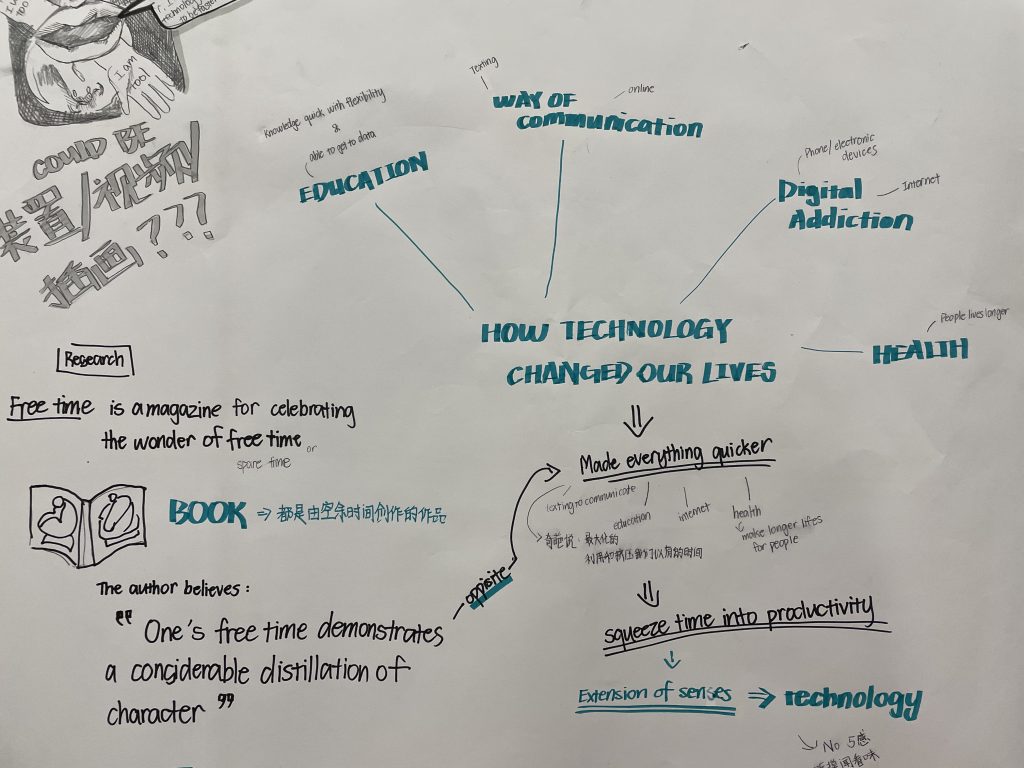 I am
TOO!
COULD BE
装置/视频/
插画,???
Knowledge quick with flexibility
&
able to get to data
EDUCATION
Texting
WAY OF
communication
online
Phone/electronic
devices
Digital
Addiction
Internet
People lives longer
HEALTH
HOW TECHNOLOGY
CHANGED OUR LIVES
Made everything quicker
texting to communicate
education
internet
health
make longer lifes
for people
奇葩说: 最大化的
时间
squeeze time into productivity
Extension of senses ⇒ technology
No 5感
Research
Free time is a magazine for celebrating
the wonder of free time or
spare time
BOOK ⇒ 都是由空余时间创作的作品
The author believes:
"One's free time demonstrates
a considerable distillation of
character"
opposite